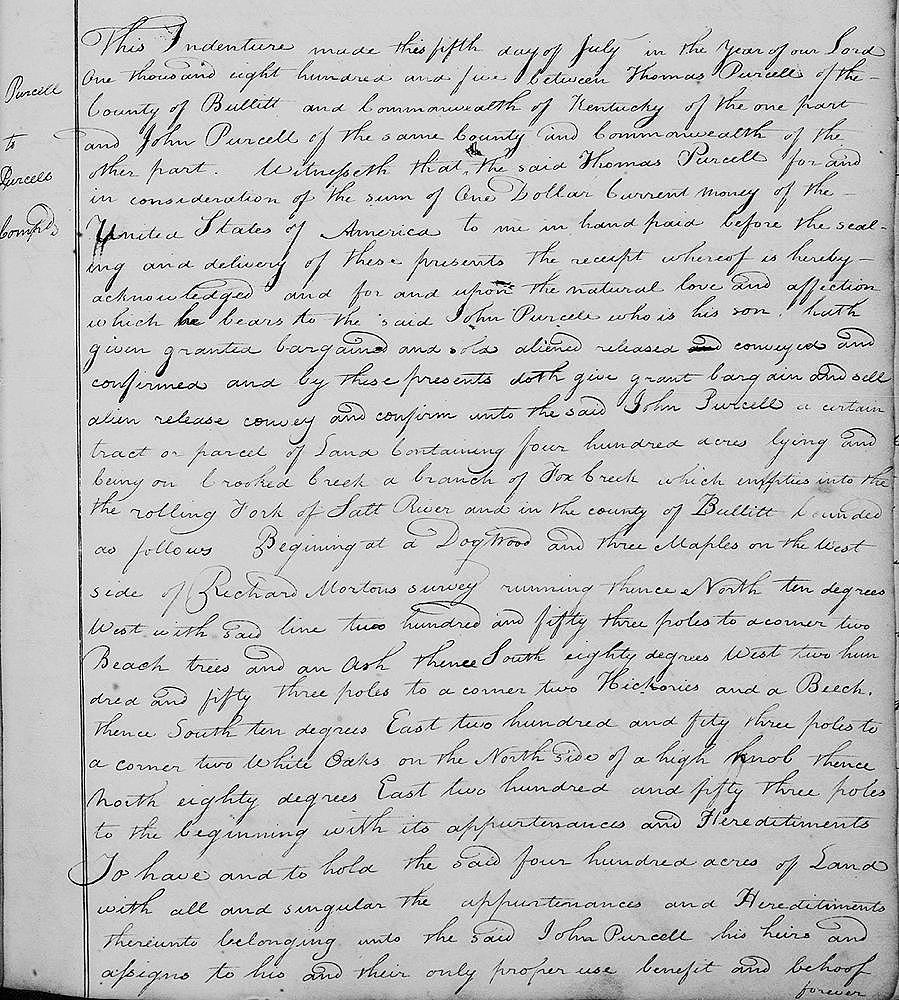 Purcell
to
Purcell
Compd
This Indenture made this fifth day of July in the Year of our Lord
One thousand eight hundred and five between Thomas Purcell of the
County of Bullitt and Commonwealth of Kentucky of the one part
and John Purcell of the same County and Commonwealth of the
other part. Witnesseth that the said Thomas Purcell for and
in consideration of the sum of One Dollar Current money of the
United States of America to me in hand paid before the seal-
ing and delivery of these presents the receipt whereof is hereby
acknowledged and for and upon the natural love and affection
which he bears to the said John Purcell who is his son. hath
given granted bargained and sold aliened released and conveyed and
confirmed and by these presents doth give grant bargain and sell
alien release convey and confirm unto the said John Purcell a certain
tract or parcel of Land Containing four hundred acres lying and
being on Crooked Creek a branch of Fox Creek which empties into the
the rolling Fork of Salt River and in the county of Bullitt bounded
as follows Begining at a Dogwood and three Maples on the West
side of Richard Mortons survey running thence North ten degrees
West with said line two hundred and fifty three poles to a corner two
Beach trees and an Ash thence South eighty degrees West two hun
dred and fifty three poles to a corner two Hickories and a Beech.
thence South ten degrees East two hundred and fifty three poles to
a corner two White Oaks on the North side of a high knob thence
North eighty degrees East two hundred and fifty three poles
to the beginning with its appurtenances and Hereditiments
To have and to hold the said four hundred acres of Land
with all and singular the appurtenances and Hereditiments
thereunto belonging unto the said John Purcell his heirs and
assigns to his and their only proper use benefit and behoof
forever